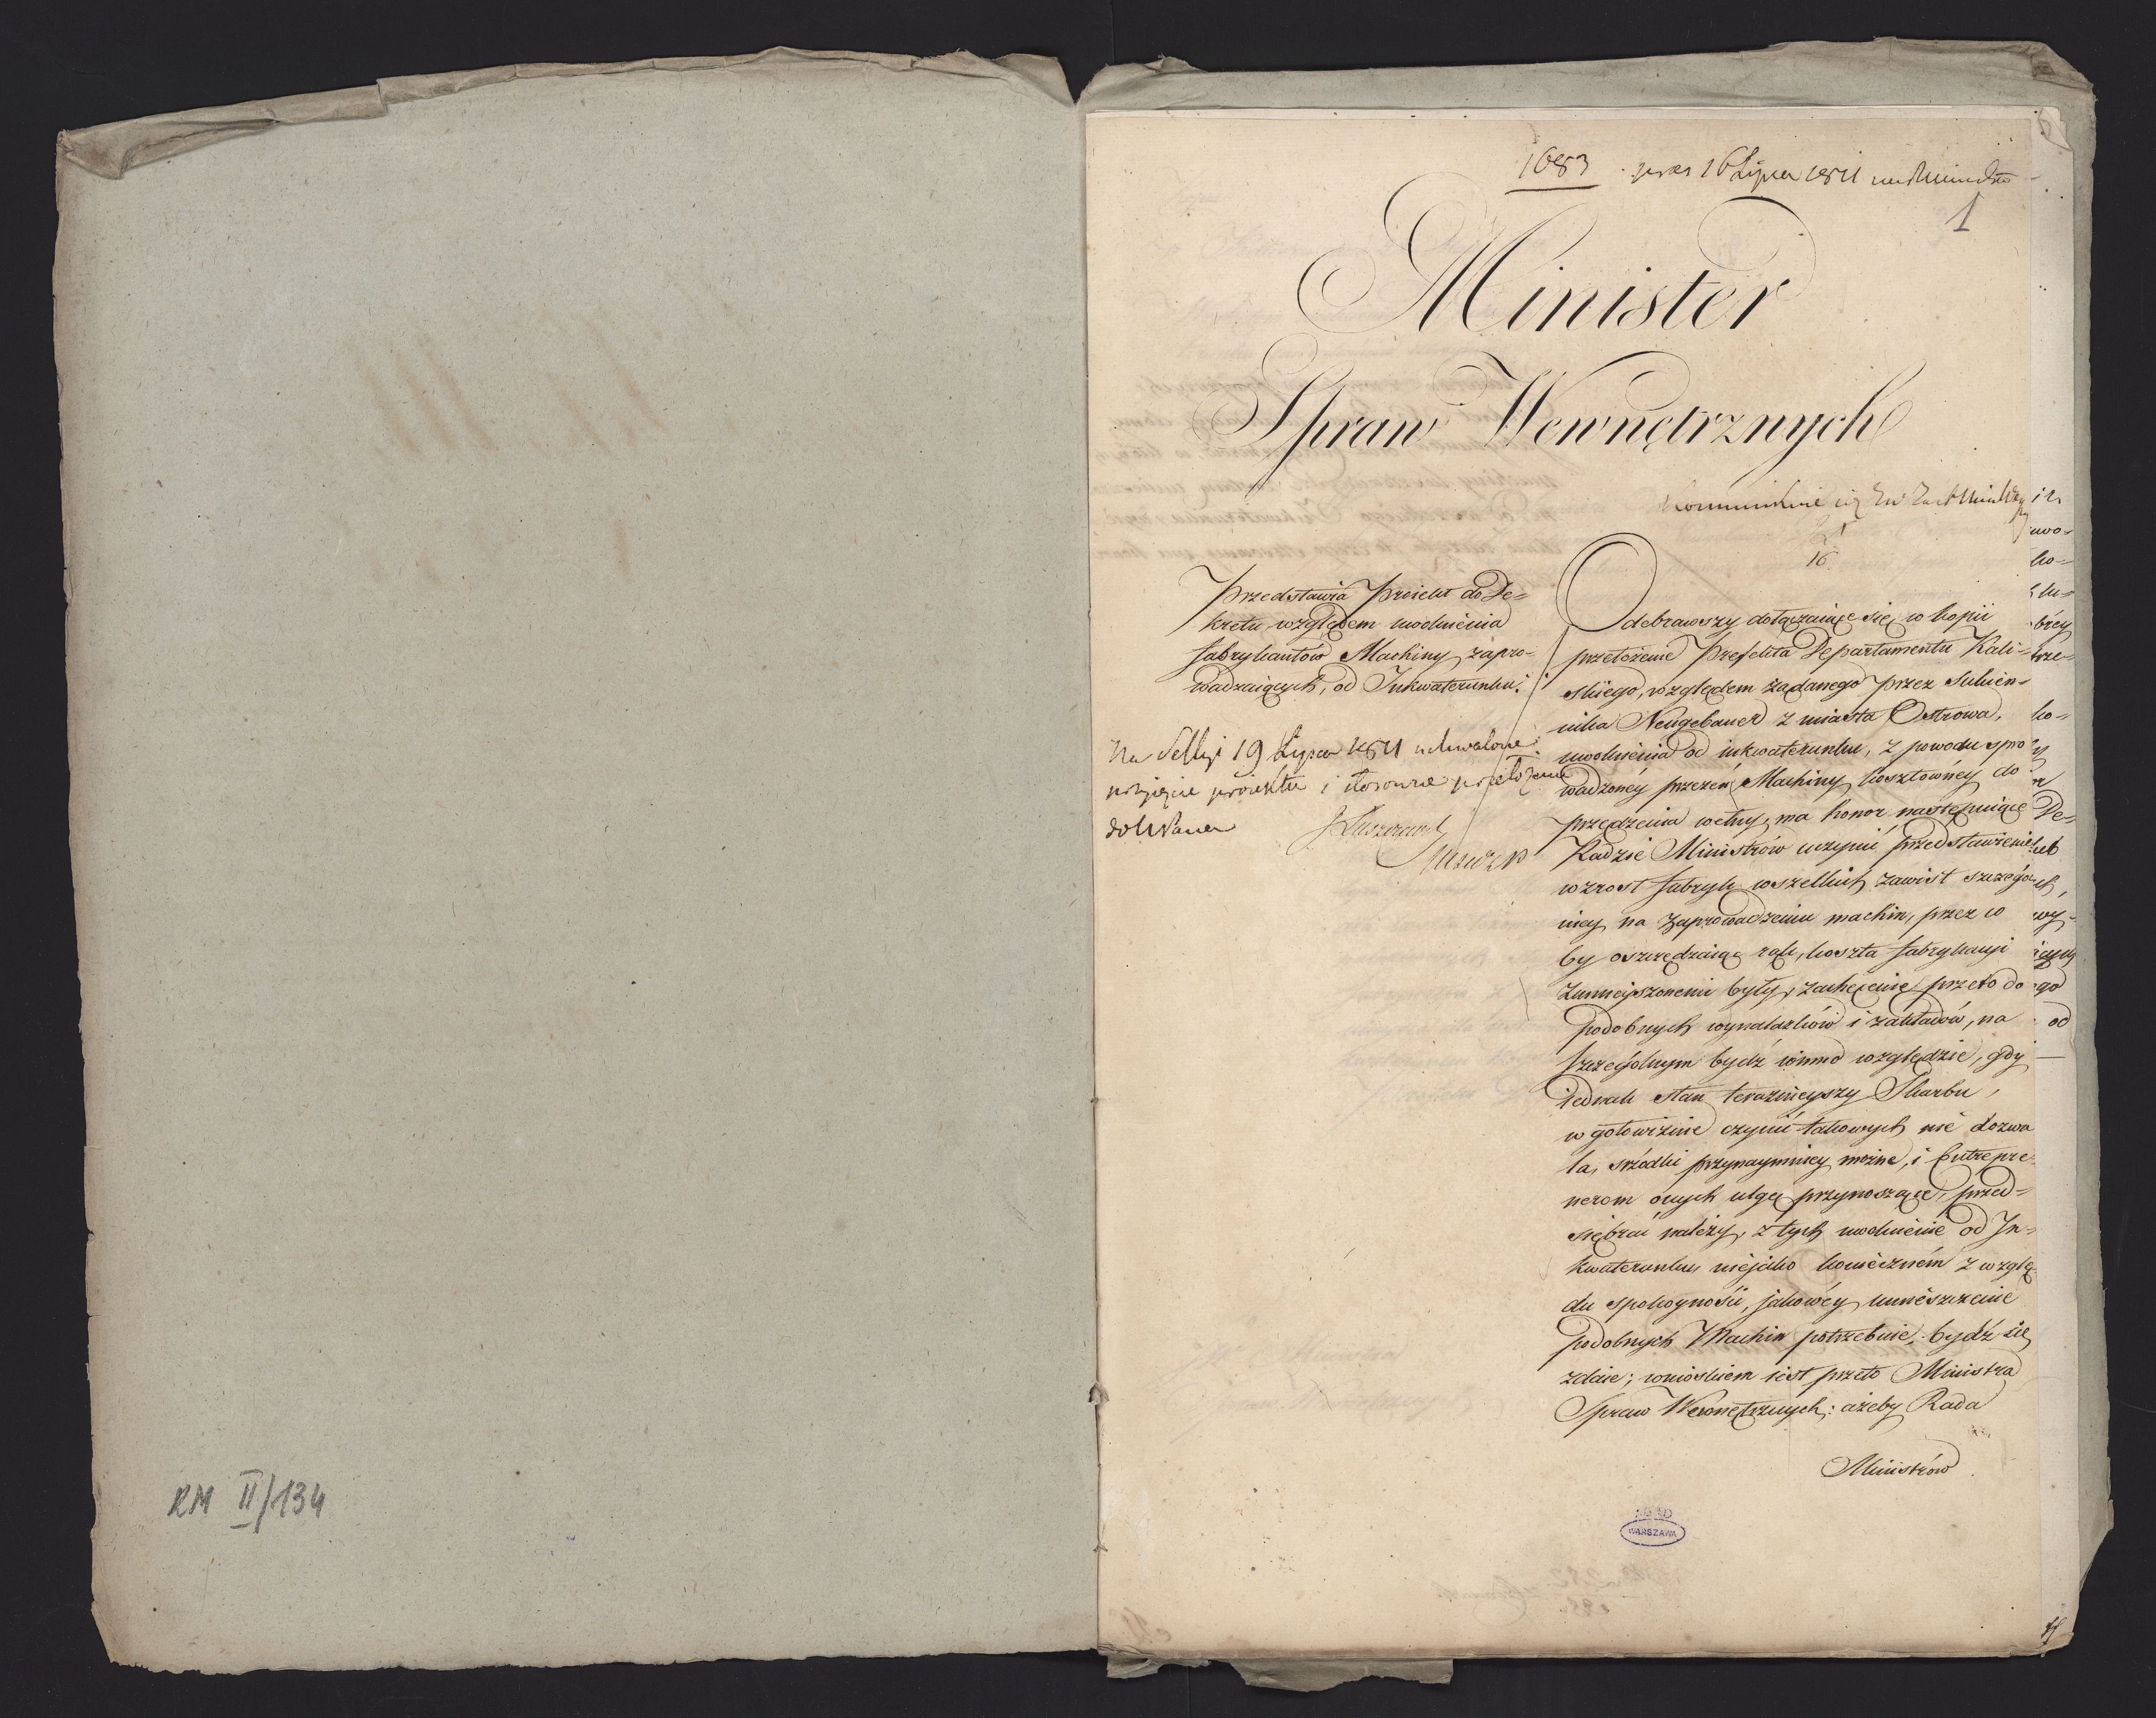 RM II/134
1683 16 Lipca 1811
1
Minister
Spraw Wewnętrznych
16
Przedstawia Proiekt do De=
kretu względem uwolnienia
fabrykantów Machiny zapro-
wadzaiących, od Inkwaterunku.
Na Sessyi 19 Lipca 1811 uchwalone
przyięcie proiektu i stosowne przełożenie
do N Pana
Odebrawszy dołączaiące się w kopii
przełożenie Prefekta Departamentu Kali=
skiego, względem żądanego przez Sukien-
nika Neugebauer z miasta Ostrowa,
uwolnienia od inkwaterunku, z powodu spro
wadzoney przezeń Machiny kosztowney do
przędzenia wełny, ma honor następuiące
Radzie Ministrów uczynić przedstawienie
wzrost fabryk wszelkich zawisł szczegól
niey na zaprowadzeniu machin, przez co
by oszczędzaiąc rąk, koszta fabrykacyi
zmnieyszonemi były, zachęcenie przeto do
podobnych wynalazków i zakładów, na
szczególnym bydź winno względzie, gdy
iednak stan teraźnieyszy Skarbu,
w gotowiźnie czynić takowych nie dozwa
la, śrzodki przynaymniey możne, i Entrepre
nerom onych ulgę przynoszące, przed=
sięBrać należy, z tych uwolnienie od In=
kwaterunku nieiako koniecznem z wzglę
du spokoyności, jakowey umieszczenie
podobnych Machin potrzebuie, bydź się
zdaie; wnioskiem iest przeto Ministra
Spraw Wewnętrznych: ażeby Rada
Ministrów
AGAD
WARSZAWA